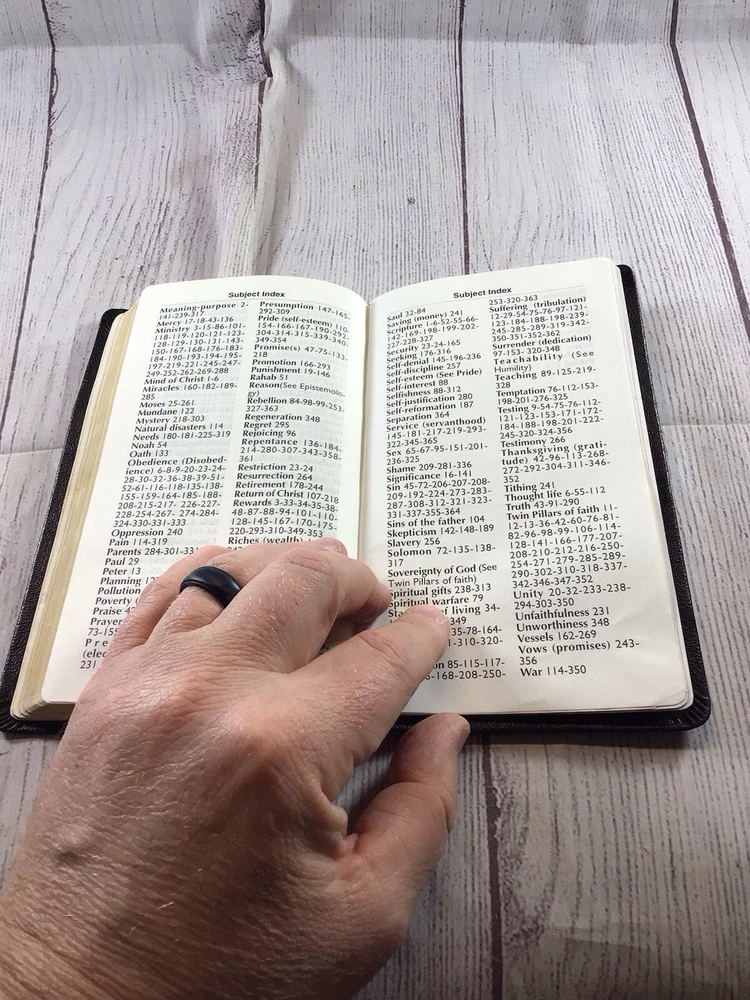 Subject Index
Meaning-purpose 2-
141-239-317
Mercy 17-18-43-136
Ministry 3-15-86-101-
118-119-120-121-123-
128-129-130-131-143-
150-167-168-176-183-
184-190-193-194-195-
197-219-221-245-247-
249-252-262-269-288
Mind of Christ 1-6
Miracles 160-182-189-
285
Moses 25-261
Mundane 122
Mystery 218-303
Natural disasters 114
Needs 180-181-225-319
Noah 54
Oath 133
Obedience (Disobed-
ience) 6-8-9-20-23-24-
28-30-32-36-38-39-51-
52-61-116-118-135-138-
155-159-164-185-188-
208-215-217- 226-227-
228-254-267- 274-284-
324-330-331-333
Oppression 240
Pain 114-319
Parents 284-301-33
Paul 29
Peter 13
Planning
Pollution
Poverty
Praise
Prayer
73-15
Pre
(elec
231
Presumption 147-165-
292-309
Pride (self-esteem) 110-
154-166-167-190-292-
304-314-315-339-340-
349-354
Promise(s) 47-75-133-
218
Promotion 166-293
Punishment 19-146
Rahab 51
Reason(See Epistemolo-
gy)
Rebellion 84-98-99-253-
327-363
Regeneration 348
Regret 295
Rejoicing 96
Repentance 136-184-
214-280-307-343-358-
361
Restriction 23-24
Resurrection 264
Retirement 178-244
Return of Christ 107-218
Rewards 3-33-34-35-38-
48-87-88-94-101-110-
128-145-167-170-175-
220-293-310-349-353
Riches (wealth)
Subject Index
Saul 32-84
Saving (money) 241
Scripture 1-6-52-55-66-
142-169-198-199-202-
227-228-327
Security 23-24-165
Seeking 176-316
Self-denial 145-196-236
Self-discipline 257
Self-esteem (See Pride)
Self-interest 88
Selfishness 88-312
Self-justification 280
Self-reformation 187
Separation 364
Service (servanthood)
145-181-217-219-293-
322-345-365
Sex 65-67-95-151-201-
236-325
Shame 209-281-336
Significance 16-141
Sin 45-72-206-207-208-
209-192-224-273-283-
287-308-312-321-323-
331-337-355-364
Sins of the father 104
Skepticism 142-148-189
Slavery 256
Solomon 72-135-138-
317
Sovereignty of God (See
Twin Pillars of faith)
Spiritual gifts 238-313
Spiritual warfare 79
Sta of living 34-
349
35-78-164-
1-310-320-
on 85-115-117-
6-168-208-250-
253-320-363
Suffering (tribulation)
12-29-54-75-76-97-121-
123-184-188-239-
245-285-289-319-342-
350-351-352-362
Surrender (dedication)
97-153- 320-348
Teachability (See
Humility)
Teaching 89-125-219-
328
Temptation 76-112-153-
198-201-276-325
Testing 9-54-75-76-112-
121-123-153-171-172-
184-188-198-201-222-
245-320-324-356
Testimony 266
Thanksgiving (grati-
tude) 42-96-113-268-
272-292-304-311-346-
352
Tithing 241
Thought life 6-55-112
Truth 43-91-290
Twin Pillars of faith 11-
12-13-36-42-60-76-81-
82-96-98-99-106-114-
128-141-166-177-207-
208-210-212-216-250-
254-271-279-285-289-
290-302-310-318-337-
342-346-347-352
Unity 20-32-233-238-
294-303-350
Unfaithfulness 231
Unworthiness 348
Vessels 162-269
Vows (promises) 243-
356
War 114-350